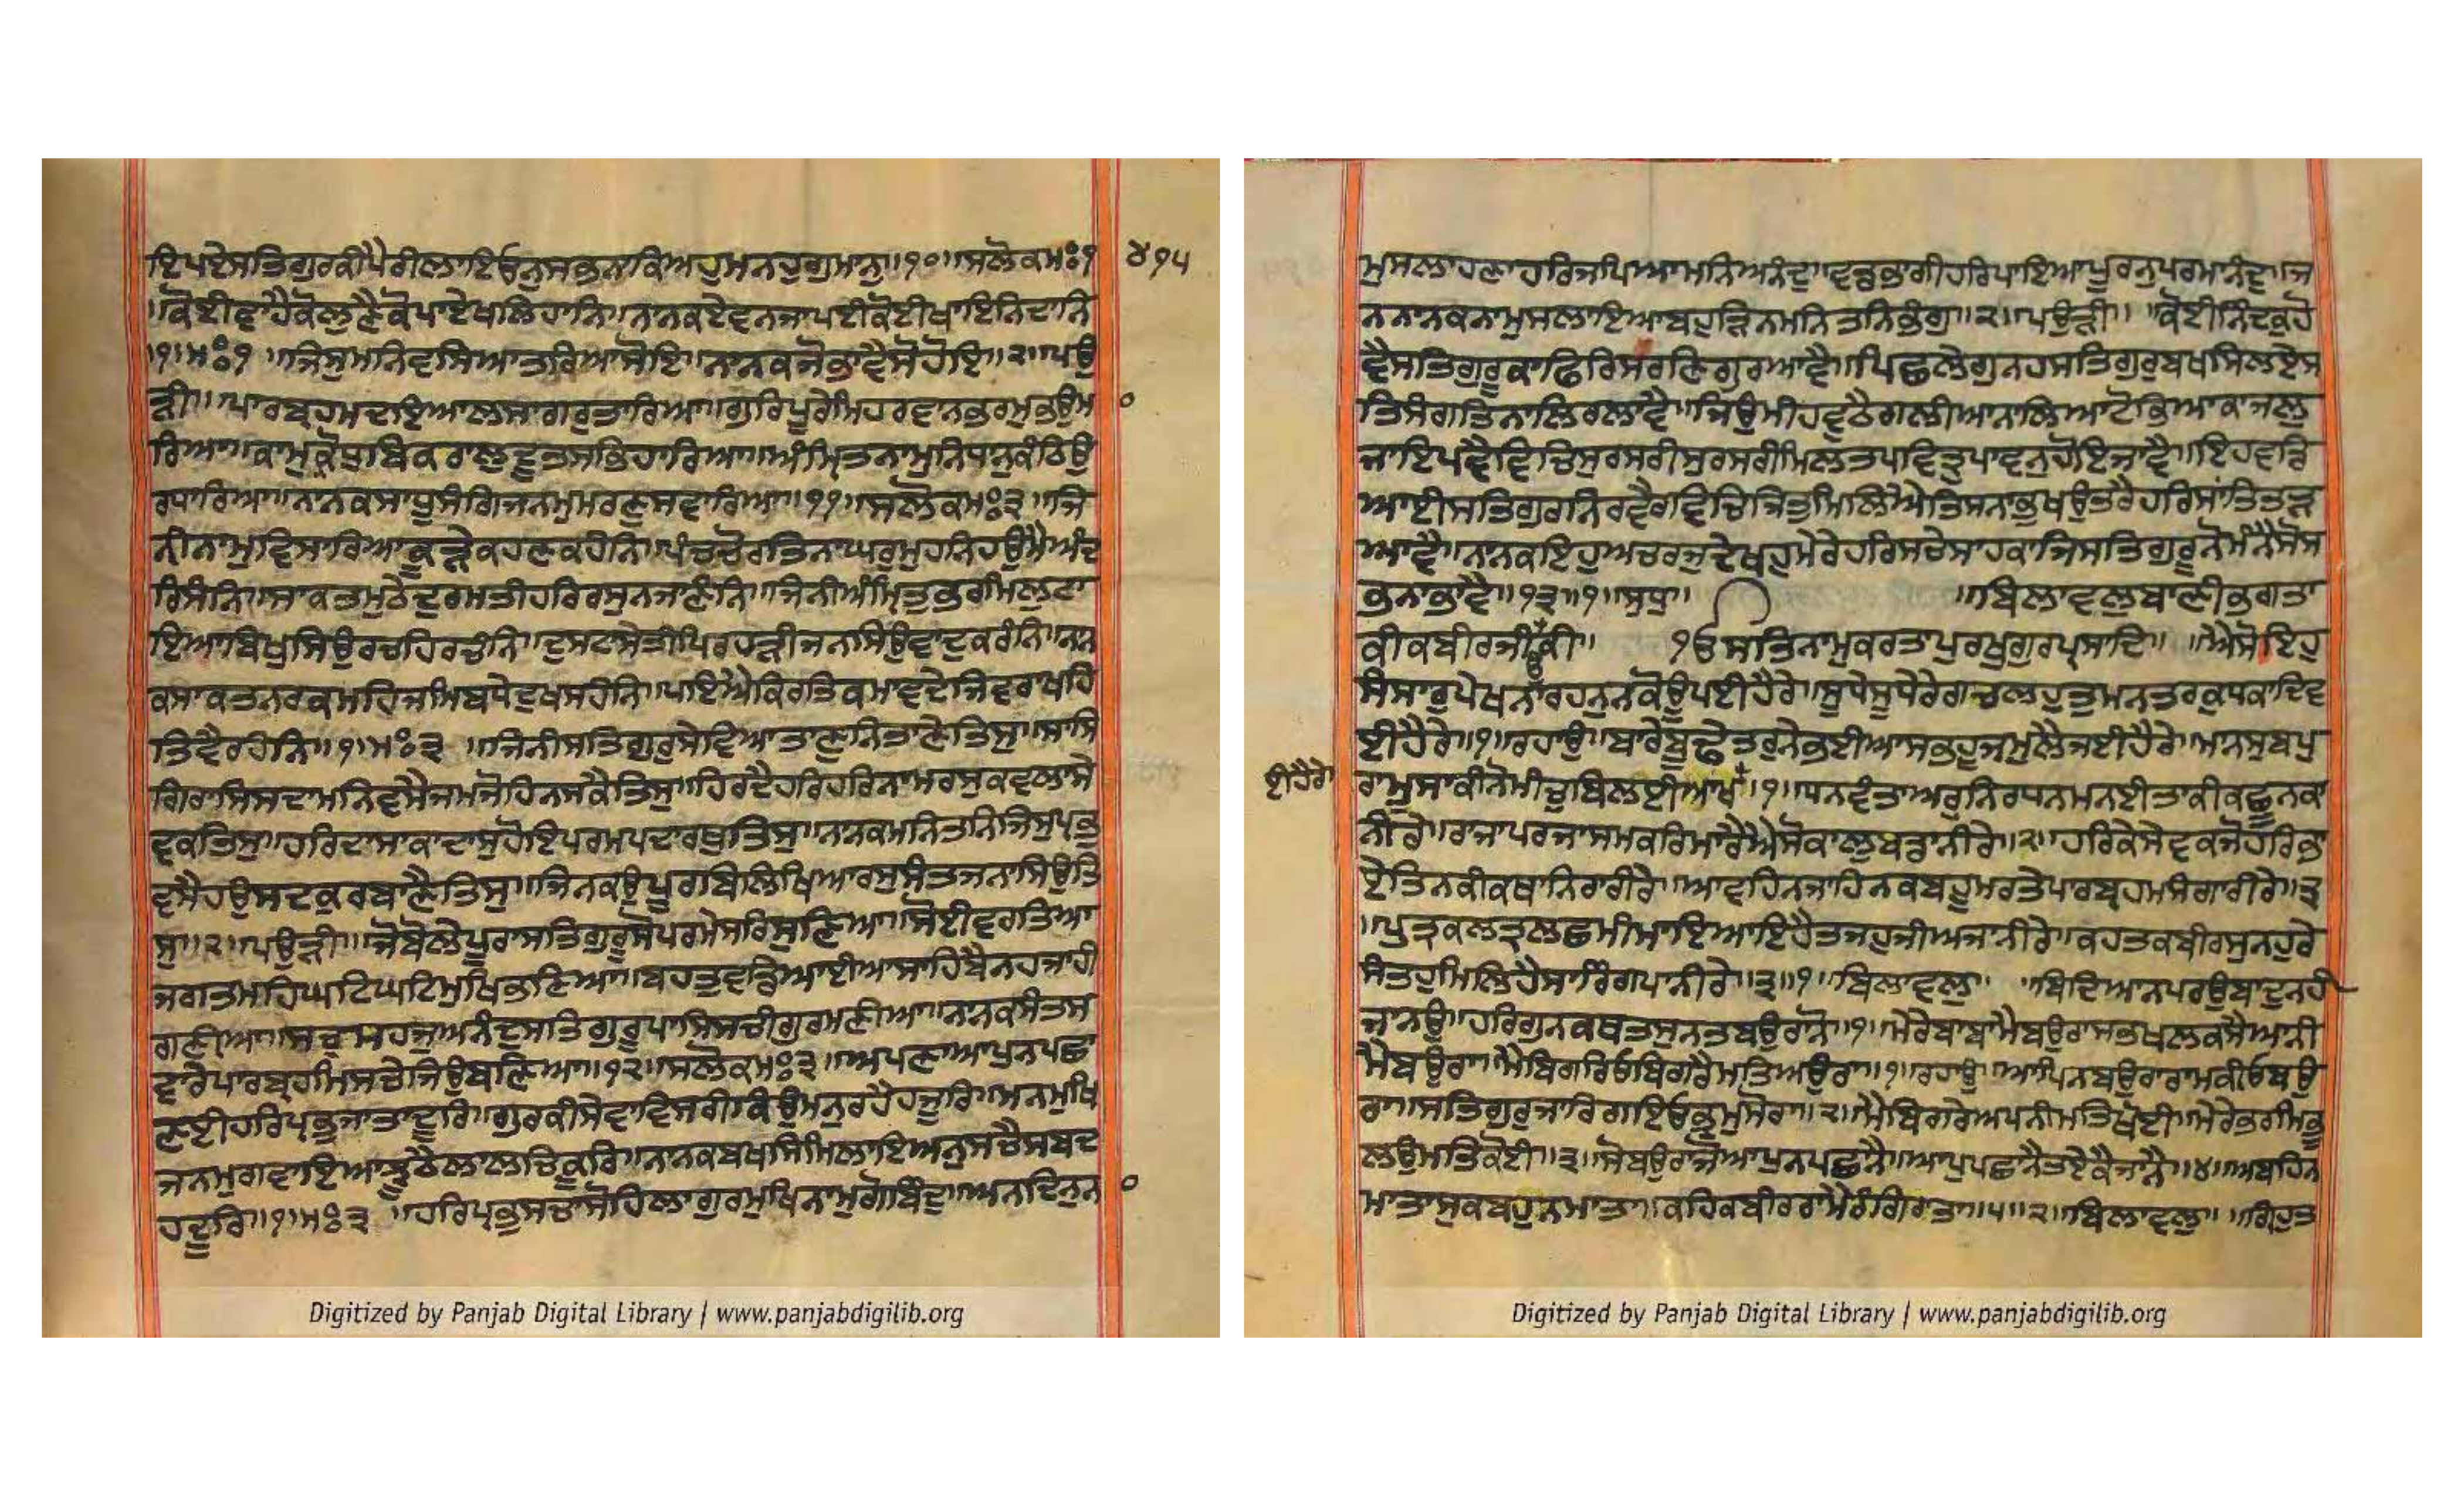 ਇਪਏਸਤਿਗੁਰਕੀਪੈਰੀਲਾਇਓਨੁਸਭਨਾਕਿਅਹੁਮਨਹੁਗੁਮਾਨੁ॥੧੦॥ਸਲੋਕਮਃ੧
੪੧੫
॥ਕੋਈਵਾਹੈਕੋਲੁਣੈਕੋਪਾਏਖਲਿਹਾਨਿ॥ਨਾਨਕਏਵਨਜਾਪਈਕੋਈਖਾਇਨਿਦਾਨਿ
॥੧॥ਮਃ੧ ॥ਜਿਸੁਮਨਿਵਸਿਆਤਰਿਆਸੋਇ॥ਨਾਨਕਜੋਭਾਵੈਸੋਹੋਇ॥੨॥ਪਉ
ੜੀ॥ਪਾਰਬ੍ਰਹਮਦਇਆਲਸਾਗਰੁਤਾਰਿਆ॥ਗੁਰਿਪੂਰੇਮਿਹਰਵਾਨਭਰਮੁਭਉਮਾ
ਰਿਆ॥ਕਾਮੁਕ੍ਰੋਧੁਬਿਕਰਾਲੁਦੂਤਸਭਿਹਾਰਿਆ॥ਅੰਮ੍ਰਿਤਨਾਮੁਨਿਧਾਨੁਕੰਠਿਉ
ਰਧਾਰਿਆ॥ਨਾਨਕਸਾਧੂਸੰਗਿਜਨਮੁਮਰਣੁਸਵਾਰਿਆ॥੧੧॥ਸਲੋਕਮਃ੩॥ਜਿ
ਨੀਨਾਮੁਵਿਸਾਰਿਆਕੂੜੇਕਹਣਕਹੰਨਿ॥ਪੰਚਚੋਰਤਿਨਾਘਰੁਮੁਹਨਿਹਉਮੈਅੰਦ
ਰਿਸੰਨਿ॥ਸਾਕਤਮੁਠੇਦੁਰਮਤੀਹਰਿਰਸੁਨਜਾਣੰਨਿ॥ਜਿਨੀਅੰਮ੍ਰਿਤੁਭਰਮਿਲੁਟਾ
ਇਆਬਿਖੁਸਿਉਰਚਹਿਰਚੰਨਿ॥ਦੁਸਟਾਸੇਤੀਪਿਰਹੜੀਜਨਾਸਿਉਵਾਦੁਕਰੰਨਿ॥ਨਾਨ
ਕਸਾਕਤਨਰਕਮਹਿਜਮਿਬਧੇਦੁਖਸਹੰਨਿ॥ਪਾਇਐਕਿਰਤਿਕਮਾਵਦੇਜਿਵਰਾਖਹਿ
ਤਿਵੈਰਹੰਨਿ॥੧॥ਮਃ੩ ॥ਜਿਨੀਸਤਿਗੁਰੁਸੇਵਿਆਤਾਣੁਨਿਤਾਣੇਤਿਸੁ॥ਸਾਸਿ
ਗਿਰਾਸਿਸਦਾਮਨਿਵਸੈਜਮੁਜੋਹਿਨਸਕੈਤਿਸੁ॥ਹਿਰਦੈਹਰਿਹਰਿਨਾਮਰਸੁਕਵਲਾਸੇ
ਵਕਤਿਸੁ॥ਹਰਿਦਾਸਾਕਾਦਾਸੁਹੋਇਪਰਮਪਦਾਰਥੁਤਿਸੁ॥ਨਾਨਕਮਨਿਤਨਿਜਿਸੁਪ੍ਰਭੁ
ਵਸੈਹਉਸਦਕੁਰਬਾਣੈਤਿਸੁ॥ਜਿਨਕਉਪੂਰਬਿਲਿਖਿਆਰਸੁਸੰਤਜਨਾਸਿਉਤਿ
ਸੁ॥੨॥ਪਉੜੀ॥ਜੋਬੋਲੇਪੂਰਾਸਤਿਗੁਰੂਸੋਪਰਮੇਸਰਿਸੁਣਿਆ॥ਸੋਈਵਰਤਿਆ
ਜਗਤਮਹਿਘਟਿਘਟਿਮੁਖਿਭਣਿਆ॥ਬਹੁਤੁਵਡਿਆਈਆਸਾਹਿਬੈਨਹਜਾਹੀ
ਗਣੀਆ॥ਸਚੁਸਹਜੁਅਨੰਦੁਸਤਿਗੁਰੂਪਾਸਿਸਚੀਗੁਰਮਣੀਆ॥ਨਾਨਕਸੰਤਸ
ਵਾਰੇਪਾਰਬ੍ਰਹਮਿਸਚੇਜਿਉਬਣਿਆ॥੧੨॥ਸਲੋਕਮਃ੩॥ਅਪਣਾਆਪੁਨਪਛਾ
ਣਈਹਰਿਪ੍ਰਭੁਜਾਤਾਦੂਰਿ॥ਗੁਰਕੀਸੇਵਾਵਿਸਰੀਕਿਉਮਨੁਰਹੈਹਜੂਰਿ॥ਮਨਮੁਖਿ
ਜਨਮੁਗਵਾਇਆਝੂਠੈਲਾਲਚਿਕੂਰਿ॥ਨਾਨਕਬਖਸਿਮਿਲਾਇਅਨੁਸਚੈਸਬਦ
ਹਦੂਰਿ॥੧॥ਮਃ੩ ॥ਹਰਿਪ੍ਰਭੁਸਚਾਸੋਹਿਲਾਗੁਰਮੁਖਿਨਾਮੁਗੋਬਿੰਦੁ॥ਅਨਦਿਨੁਨਾ
ਮੁਸਲਾਹਣਾਹਰਿਜਪਿਆਮਨਿਅਨੰਦੁ॥ਵਡਭਾਗੀਹਰਿਪਾਇਆਪੂਰਨੁਪਰਮਾਨੰਦੁ॥ਜ
ਨਨਾਨਕਨਾਮੁਸਲਾਇਆਬਹੁੜਿਨਮਨਿਤਨਿਭੰਗੁ॥੨॥ਪਉੜੀ॥ ॥ਕੋਈਨਿੰਦਕੁਹੋ
ਵੈਸਤਿਗੁਰੂਕਾਫਿਰਿਸਰਣਿਗੁਰਆਵੈ॥ਪਿਛਲੇਗੁਨਹਸਤਿਗੁਰੁਬਖਸਿਲਏਸ
ਤਿਸੰਗਤਿਨਾਲਿਰਲਾਵੈ॥ਜਿਉਮੀਹਵੁਠੈਗਲੀਆਨਾਲਿਆਟੋਭਿਆਕਾਜਲੁ
ਜਾਇਪਵੈਵਿਚਿਸੁਰਸਰੀਸੁਰਸਰੀਮਿਲਤਪਵਿਤ੍ਰੁਪਾਵਨੁਹੋਇਜਾਵੈ॥ਇਹਵਡਿ
ਆਈਸਤਿਗੁਰਨਿਰਵੈਰਵਿਚਿਜਿਤੁਮਿਲਿਐਤਿਸਨਾਭੁਖਉਤਰੈਹਰਿਸਾਂਤਿਤੜ
ਆਵੈ॥ਨਾਨਕਇਹੁਅਚਰਜੁਦੇਖਹੁਮੇਰੇਹਰਿਸਚੇਸਾਹਕਾਜਿਸਤਿਗੁਰੂਨੋਮੰਨੈਸੋਸ
ਭਨਾਭਾਵੈ॥੧੩॥੧॥ਸੁਧੁ॥ ॥ਬਿਲਾਵਲੁਬਾਣੀਭਗਤਾ
ਕੀਕਬੀਰਜੀਕੀ॥ ੴਸਤਿਨਾਮੁਕਰਤਾਪੁਰਖੁਗੁਰਪ੍ਰਸਾਦਿ॥ ॥ਐਸੋਇਹੁ
ਸੰਸਾਰੁਪੇਖਨਾਰਹਨੁਨਕੋਊਪਈਹੈਰੇ॥ਸੂਧੇਸੂਧੇਰੇਗਿਚਲਹੁਤੁਮਨਤਰਕੁਧਕਾਦਿਵ
ਈਹੈਰੇ॥੧॥ਰਹਾਉ॥ਬਾਰੇਬੂਢੇਤਰੁਨੇਭਈਆਸਭਹੂਜਮੁਲੈਜਈਹੈਰੇ॥ਮਾਨਸੁਬਪੁ
ਈਹੈਰੇ
ਰਾਮੂਸਾਕੀਨੋਮੀਚੁਬਿਲਈਆਖ॥੧॥ਧਨਵੰਤਾਅਰੁਨਿਰਧਨਮਨਈਤਾਕੀਕਛੂਨਕਾ
ਨੀਰੇ॥ਰਾਜਾਪਰਜਾਸਮਕਰਿਮਾਰੈਐਸੋਕਾਲੁਬਡਾਨੀਰੇ॥੨॥ਹਰਿਕੇਸੇਵਕਜੋਹਰਿਭਾ
ਏਤਿਨਕੀਕਥਾਨਿਰਾਰੀਰੇ॥ਆਵਹਿਨਜਾਹਿਨਕਬਹੂਮਰਤੇਪਾਰਬ੍ਰਹਮਸੰਗਾਰੀਰੇ॥੩
॥ਪੁਤ੍ਰਕਲਤ੍ਰਲਛਮੀਮਾਇਆਇਹੈਤਜਹੁਜੀਅਜਾਨੀਰੇ॥ਕਹਤਕਬੀਰਸੁਨਹੁਰੇ
ਸੰਤਹੁਮਿਲਿਹੈਸਾਰਿੰਗਪਾਨੀਰੇ॥੩॥੧॥ਬਿਲਾਵਲੁ॥ ॥ਬਿਦਿਆਨਪਰਉਬਾਦੁਨਹੀ
ਜਾਨਉ॥ਹਰਿਗੁਨਕਥਤਸੁਨਤਬਉਰਾਨੋ॥੧॥ਮੇਰੇਬਾਬਾਮੈਬਉਰਾਸਭਖਲਕਸੈਆਨੀ
ਮੈਬਉਰਾ॥ਮੈਬਿਗਰਿਓਬਿਗਰੈਮਤਿਅਉਰਾ॥੧॥ਰਹਾਉ॥ਆਪਿਨਬਉਰਾਰਾਮਕੀਓਬਉ
ਰਾ॥ਸਤਿਗੁਰੁਜਾਰਿਗਇਓਭ੍ਰਮੁਮੋਰਾ॥੨॥ਮੈਬਿਗਰੇਅਪਨੀਮਤਿਖੋਈ॥ਮੇਰੇਭਰਮਿਭੂ
ਲਉਮਤਿਕੋਈ॥੩॥ਸੋਬਉਰਾਜੋਆਪੁਨਪਛਾਨੈ॥ਆਪੁਪਛਾਨੈਤਏਕੈਜਾਨੈ॥੪॥ਅਬਹਿਨ
ਮਾਤਾਸੁਕਬਹੁਨਮਾਤਾ॥ਕਹਿਕਬੀਰਰਾਮੈਰੰਗਿਰਾਤਾ॥੫॥੨॥ਬਿਲਾਵਲੁ॥ ॥ਗ੍ਰਿਹੁਤ
Digitized by Panjab Digital Library | www.panjabdigilib.org
Digitized by Panjab Digital Library | www.panjabdigilib.org